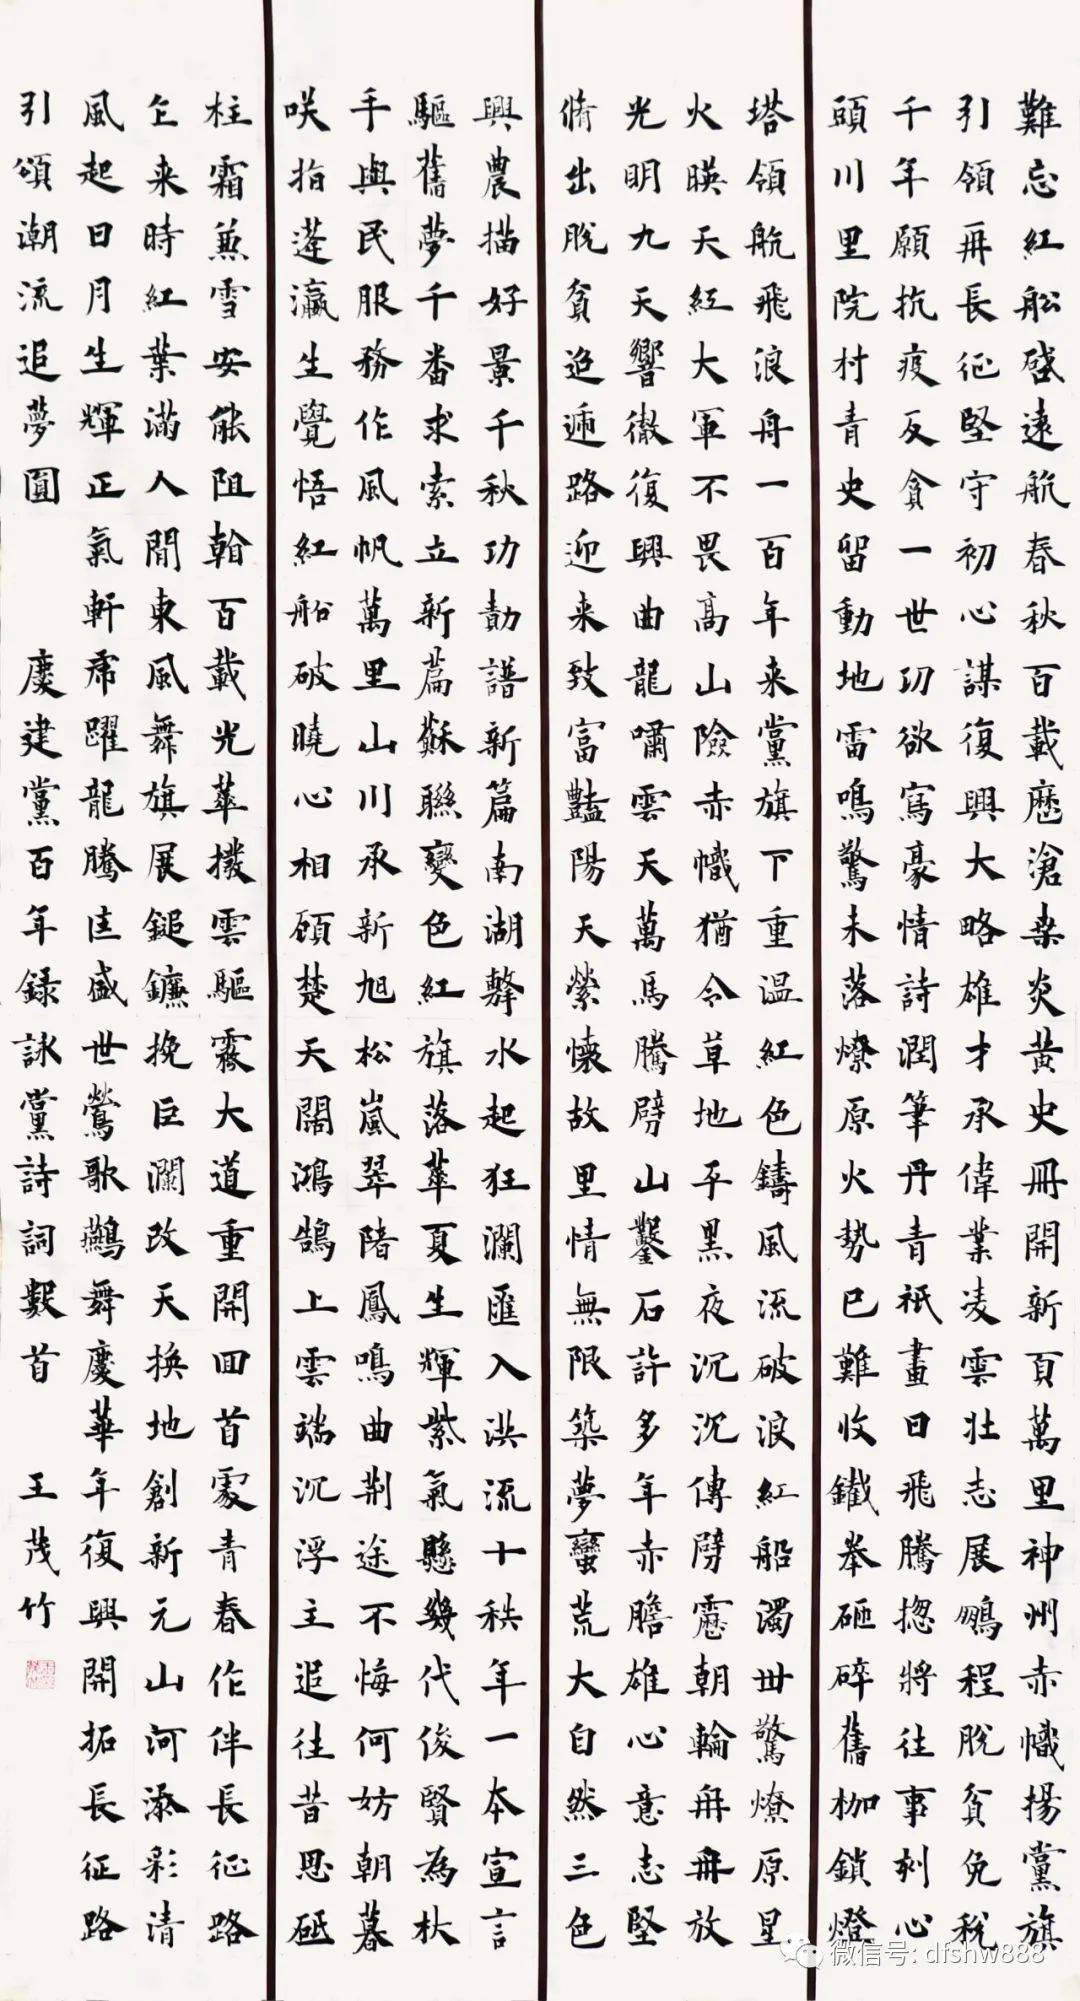 難忘紅舩啓遠航春秋百載歷滄桒炎黃史冊開新頁萬里神州赤幟揚黨旗
引領再長征堅守初心謀復興大略雄才承偉業凌雲壯志展鵬程脫貧免稅
千年願抗疫反貪一世功欲寫豪情詩潤筆丹青祇畫日飛騰揔將往事刻心
頭川里院村青史留動地雷鳴驚未落燎原火勢已難收鐵拳砸碎舊枷鎖燈
塔領航飛浪舟一百年来黨旗下重溫紅色鑄風流破浪紅船濁世驚燎原星
火暎天紅大軍不畏高山險赤幟猶令草地平黑夜沉沉傳劈靂朝輪冉冉放
光明九天響徹復興曲龍嘯雲天萬馬騰劈山鑿石許多年赤膽雄心意志堅
脩出脫貧路迎来致富豔陽天縈懷故里情無限築夢蠻荒大自然三色
興農描好景千秋功勛譜新篇南湖擊水起狂瀾匯入洪流十秩年一本宣言
驅舊夢千番求索立新篇蘇聯變色紅旗落華夏生輝紫氣懸幾代俊賢為杖
手與民服務作風帆萬里山川承新旭松嵐翠陼鳳鳴曲荆途不悔何妨朝暮
咲指蓬瀛生覺悟紅船破曉心相顧楚天闊鴻鵠上雲端沉浮主追往昔思砥
柱霜兼雪安能阻翰百載光華撥雲驅霧大道重開回首處青春作伴長征路
仝来時紅葉滿人間東風舞旗展鎚鐮挽巨瀾改天換地創新元山河添彩清
風起日月生輝正氣軒虎躍龍騰匡盛世鶯歌鷰舞慶華年復興開拓長征路
引頌潮流追夢圓 慶建黨百年録詠黨詩詞數首 王茂竹
微信号: dfshw888